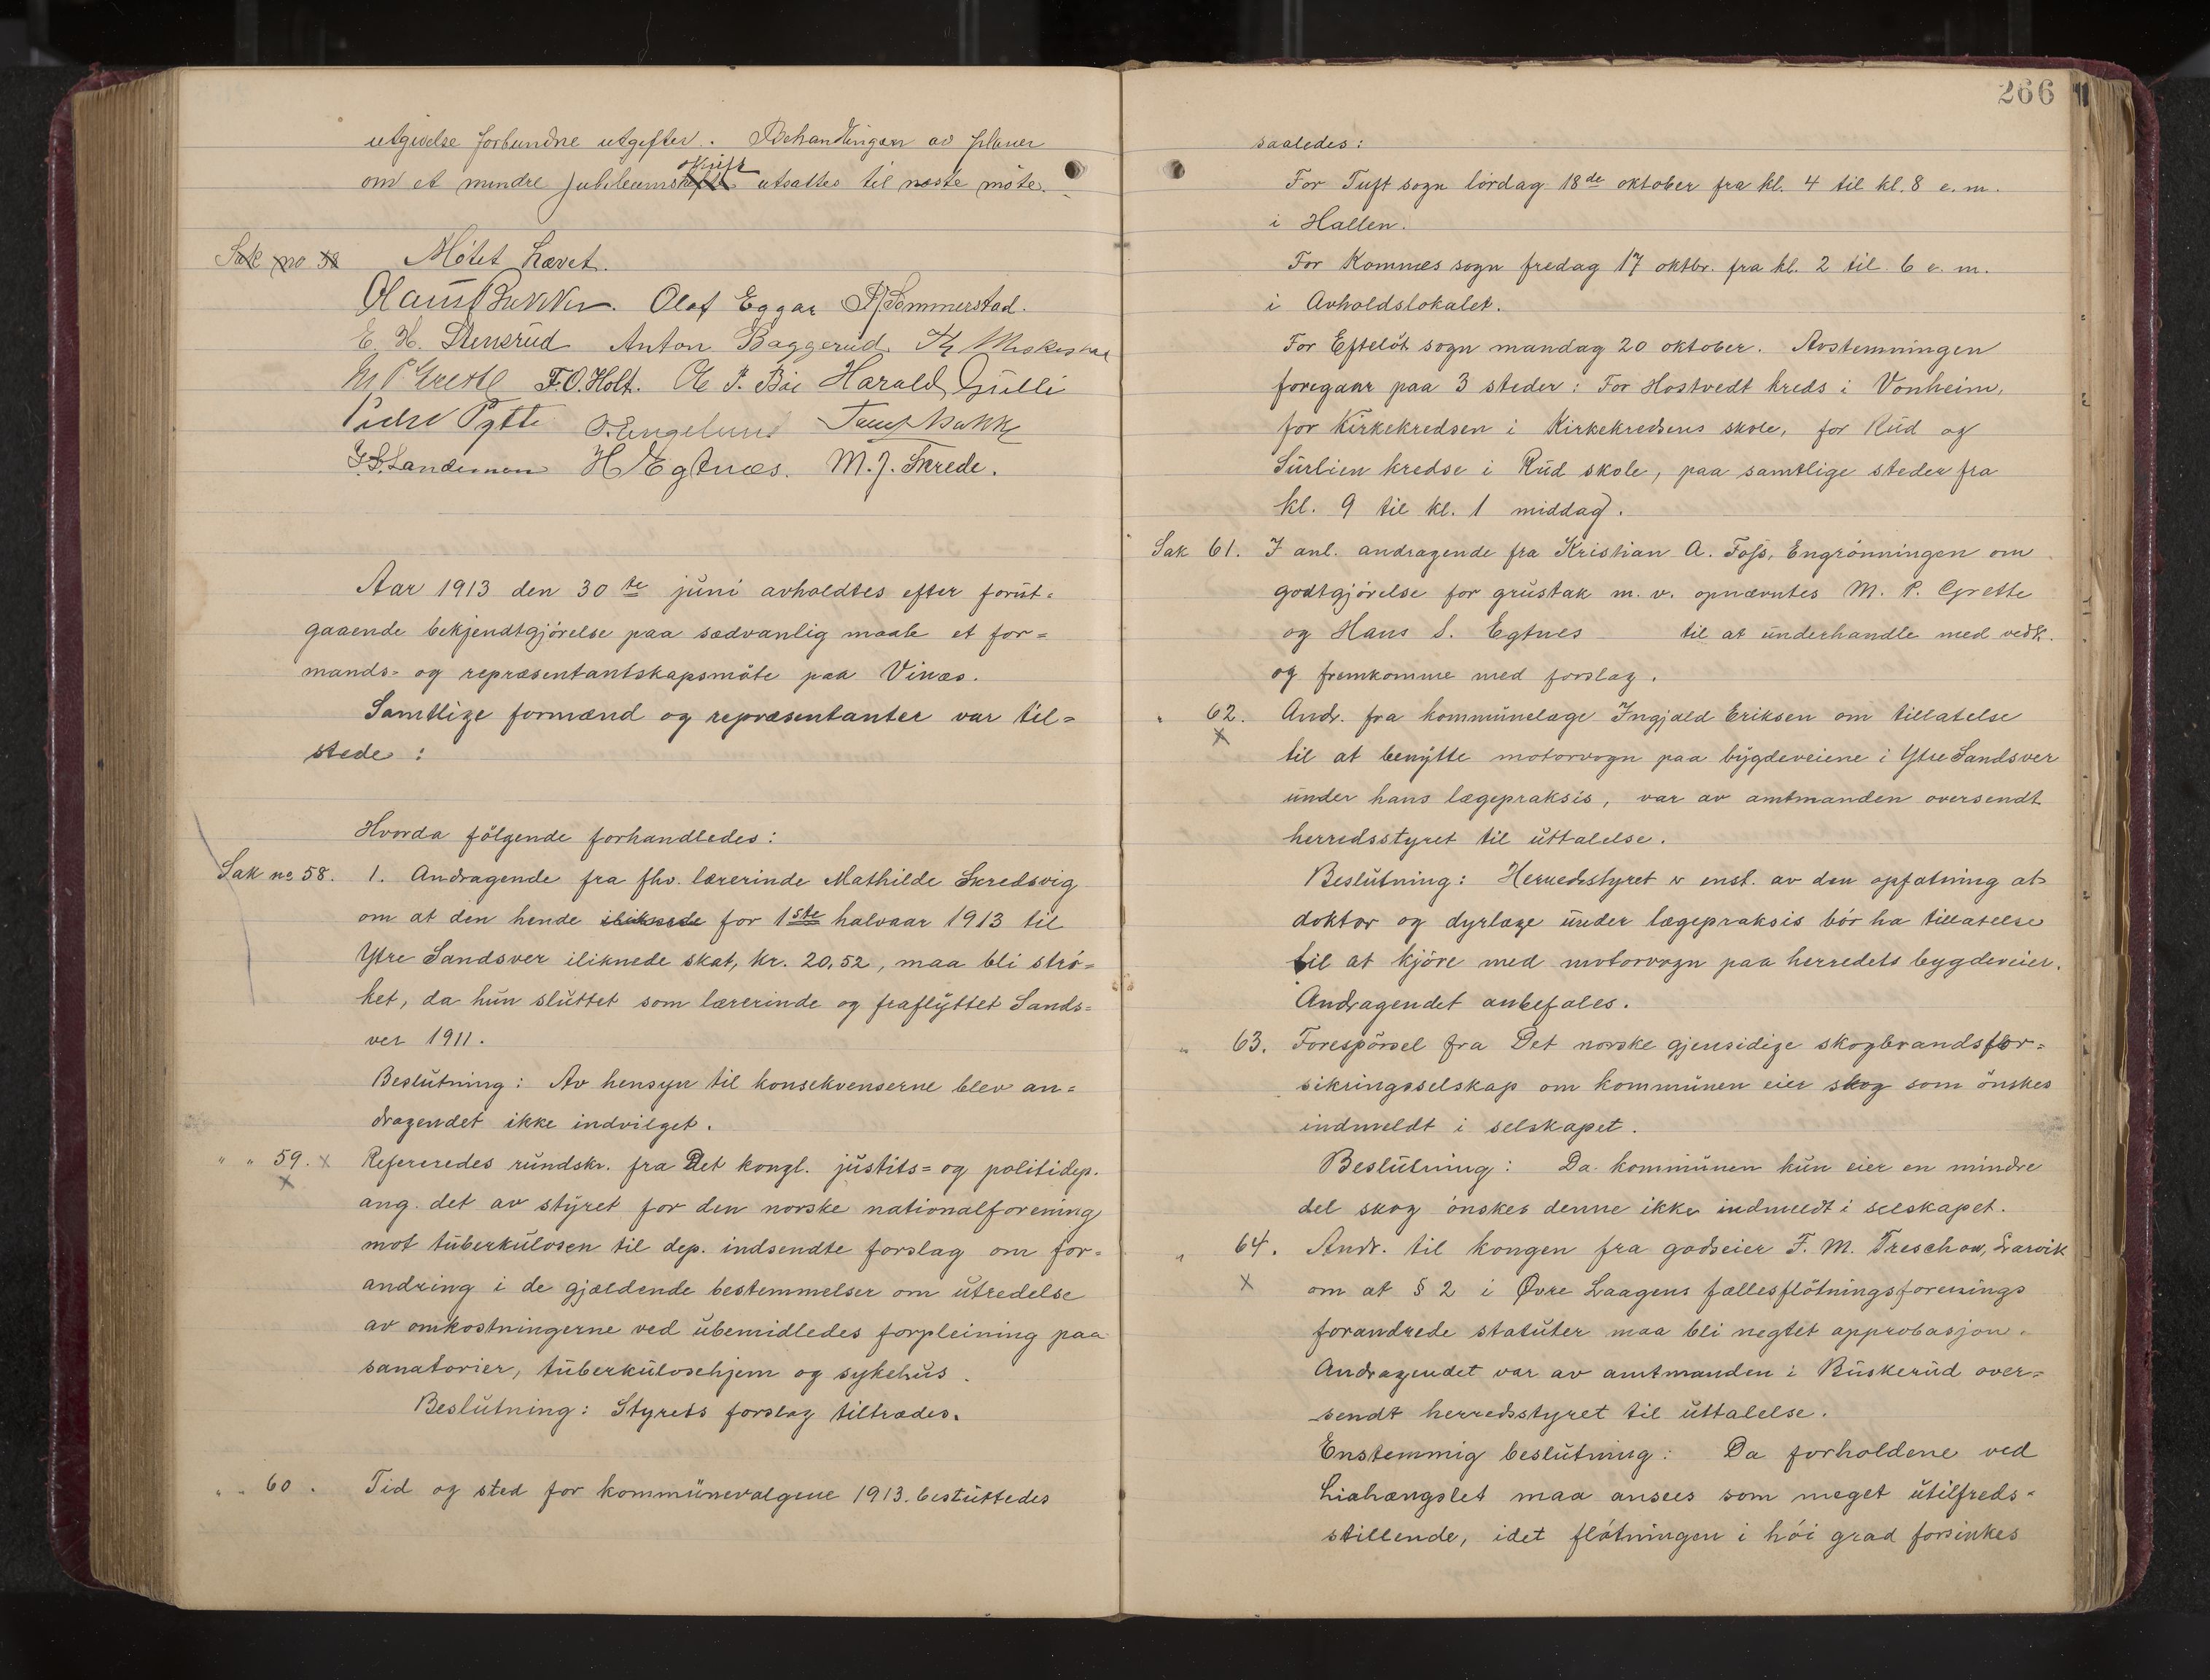 utgivelse forbundne utgifter. Behandlingen av planer
om et mindre jubileumsskrift utsattes til næste møte.
Sak no 58 Møtet hævet.
Olaus Bakken. Olaf Eggar Sommerstad.
E. H. Stensrud Anton Baggerud.
M P Grette F. O. Holt. O. P. Bøe Harald Gulli
Peder Pytte O. Engelund
Landsmen H Egtnæs. M. J. Skrede.
Aar 1913 den 30te juni avholdtes efter forut=
gaaende bekjendtgjörelse paa sædvanlig maate et for=
mands= og repræsentantskapsmöte paa Vinæs.
Samtlige formænd og repræsentanter var til=
stede:
Hvorda fölgende forhandledes:
Sak no 58. 1. Andragende fra fhv. lærerinde Mathilde Skredsvig
om at den hende iliknede for 1ste halvaar 1913 til
Ytre Sandsver iliknede skat, kr. 20,52, maa bli strö=
ket, da hun sluttet som lærerinde og fraflyttet Sands=
ver 1911.
Beslutning: Av hensyn til konsekvenserne blev an=
dragendet ikke indvilget.
" " 59. x Refereredes rundskr. fra Det kongl. justits= og politidep.
x
ang. det av styret for den norske nationalforening
mot tuberkulosen til dep. indsendte forslag om for=
andring i de gjældende bestemmelser om utredelse
av omkostningerne ved ubemidledes forpleining paa
sanatorier, tuberkulosehjem og sykehus.
Beslutning: Styrets forslag tiltrædes.
" " 60. Tid og sted for kommunevalgene 1913 besluttedes
266
saaledes:
For Tuft sogn lördag 18de oktober fra kl. 4 til kl. 8 e. m.
i Hallen.
For Komnes sogn fredag 17 oktbr. fra kl. 2 til 6 e. m.
i Avholdslokalet.
For Eftelöt sogn mandag 20 oktober. Avstemningen
foregaar paa 3 steder: For Hostvedt kreds i Vonheim,
for Kirkekredsen i Kirkekredsens skole, for Rud og
Surlien kredse i Rud skole, paa samtlige steder fra
kl. 9 til kl. 1 middag.
Sak 61. I anl. andragende fra Kristian A. Foss, Engrönningen om
godtgjörelse for grustak m. v. opnævntes M. P. Grette
og Hans S. Egtnes til at underhandle med vedk.
og fremkomme med forslag.
" 62. Andr. fra kommunelæge Ingjald Eriksen om tillatelse
x
til at benytte motorvogn paa bygdeveiene i Ytre Sandsver
under hans lægepraksis, var av amtmanden oversendt
herredsstyret til uttalelse.
Beslutning: Herredsstyret er enst. av den opfatning at
doktor og dyrlæge under lægepraksis bör ha tillatelse
til at kjöre med motorvogn paa herredets bygdeveier.
Andragendet anbefales.
" 63. Forespörsel fra Det norske gjensidige skogbrandsfor=
sikringsselskap om kommunen eier skog som önskes
indmeldt i selskapet.
Beslutning: Da kommunen kun eier en mindre
del skog önskes denne ikke indmeldt i selskapet.
" 64. Andr. til kongen fra godseier F. M. Treschow, Larvik
x om at § 2 i Øvre Laagens fællesflötningsforenings
forandrede statuter maa bli negtet approbasjon.
Andragendet var av amtmanden i Buskerud over=
sendt herredsstyret til uttalelse.
Enstemmig beslutning: Da forholdene ved
Liahængslet maa ansees som meget utilfreds=
stillende, idet flötningen i höi grad forsinkes